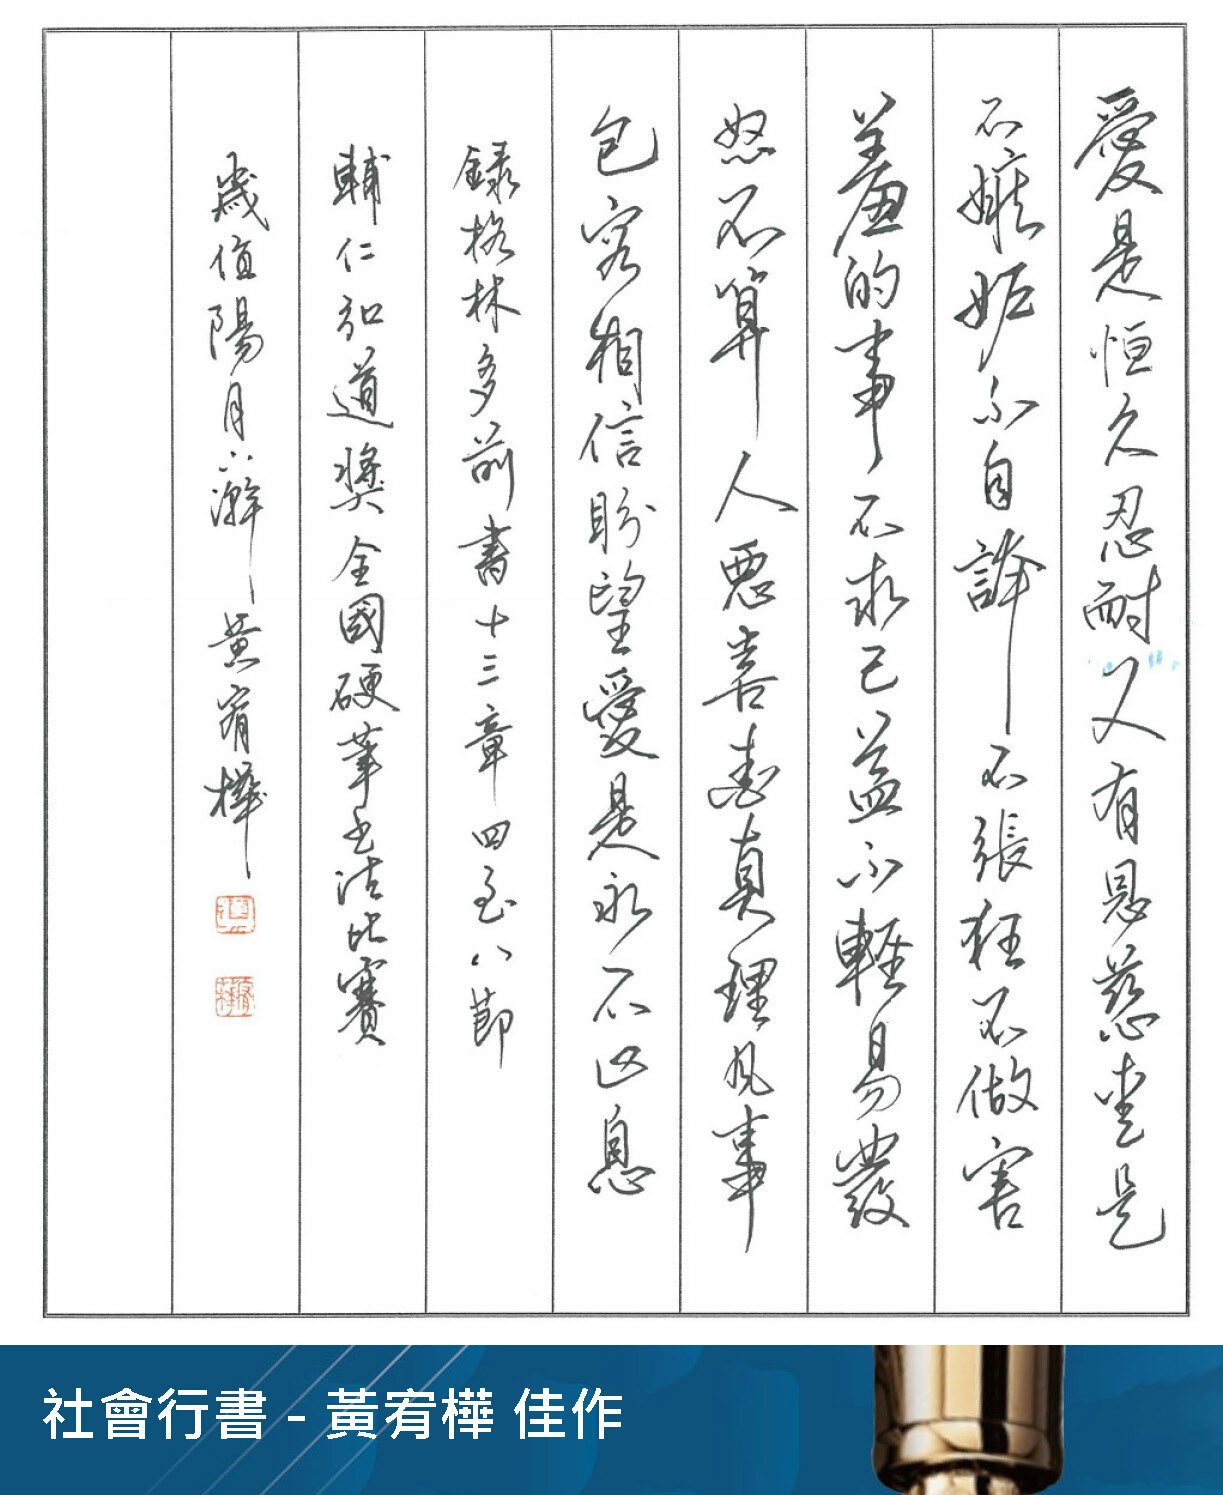 愛是恒久忍耐又有恩慈愛是
不嫉妒不自誇不張狂不做害
羞的事不求己益不輕易發
怒不算人惡喜愛真理凡事
包容相信盼望愛是永不止息
錄格林多前書十三章四至八節
輔仁弘道獎全國硬筆書法比賽
歲值陽月下澣 黃宥樺
社會行書 - 黃宥樺 佳作